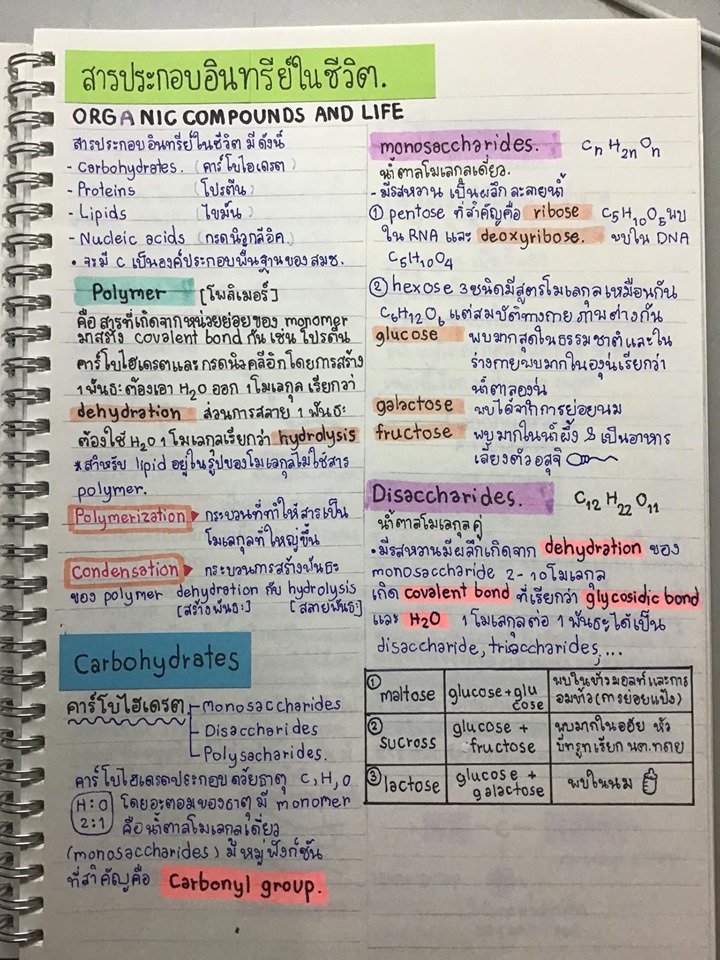 สารประกอบอินทรีย์ในชีวิต.
ORGANIC COMPOUNDS AND LIFE
สารประกอบอินทรีย์ในชีวิต มีดังนี้
- Carbohydrates. (คาร์โบไฮเดรต)
- Proteins (โปรตีน)
- Lipids (ไขมัน)
- Nucleic acids (กรดนิวคลีอิค)
• จะมี C เป็นองค์ประกอบพื้นฐานของสมช.
Polymer [โพลิเมอร์]
คือสารที่เกิดจากหน่วยย่อยของ monomer
มาสร้าง covalent bond กัน เช่น โปรตีน
คาร์โบไฮเดรตและกรดนิวคลีอิกโดยการสร้าง
1 พันธะต้องเอา H₂O ออก 1 โมเลกุล เรียกว่า
dehydration ส่วนการสลาย 1 พันธะ
ต้องใช้ H₂O 1 โมเลกุลเรียกว่า hydrolysis
*สำหรับ lipid อยู่ในรูปของโมเลกุลไม่ใช่สาร
polymer.
Polymerization ▸ กระบวนที่ทำให้สารเป็น
โมเลกุลที่ใหญ่ขึ้น
Condensation ▸ กระบวนการสร้างพันธะ
ของ polymer dehydration กับ hydrolysis
[สร้างพันธะ] [สลายพันธะ]
Carbohydrates
คาร์โบไฮเดรต
Monosaccharides
Disaccharides
Polysacharides.
คาร์โบไฮเดรตประกอบด้วยธาตุ C, H, O
H:O โดยอะตอมของธาตุมี monomer
2:1 คือน้ำตาลโมเลกุลเดี่ยว
(monosaccharides) มีหมู่ฟังก์ชัน
ที่สำคัญคือ Carbonyl group.
monosaccharides. CnH2nOn
น้ำตาลโมเลกุลเดี่ยว.
- มีรสหวาน เป็นผลึก ละลายน้ำ
① pentose ที่สำคัญคือ ribose C₅H₁₀O₅ พบ
ใน RNA และ deoxyribose. พบใน DNA
C₅H₁₀O₄
② hexose 3 ชนิดมีสูตรโมเลกุลเหมือนกัน
C₆H₁₂O₆ แต่สมบัติทางกายภาพต่างกัน
glucose พบมากสุดในธรรมชาติและใน
ร่างกายพบมากในองุ่นเรียกว่า
น้ำตาลองุ่น
galactose พบได้จากการย่อยนม
fructose พบมากในน้ำผึ้ง & เป็นอาหาร
เลี้ยงตัวอสุจิ
Disaccharides. C₁₂H₂₂O₁₁
น้ำตาลโมเลกุลคู่
• มีรสหวานมีผลึกเกิดจาก dehydration ของ
monosaccharide 2-10 โมเลกุล
เกิด covalent bond ที่เรียกว่า glycosidic bond
และ H₂O 1 โมเลกุลต่อ 1 พันธะได้เป็น
disaccharide, trisaccharides,...
① maltose glucose+glucose พบในข้าวมอลท์และการอมข้าว(การย่อยแป้ง)
② sucross glucose + fructose พบมากในอ้อย หัวบีทรูทเรียก นต.ทราย
③ lactose glucose + galactose พบในนม